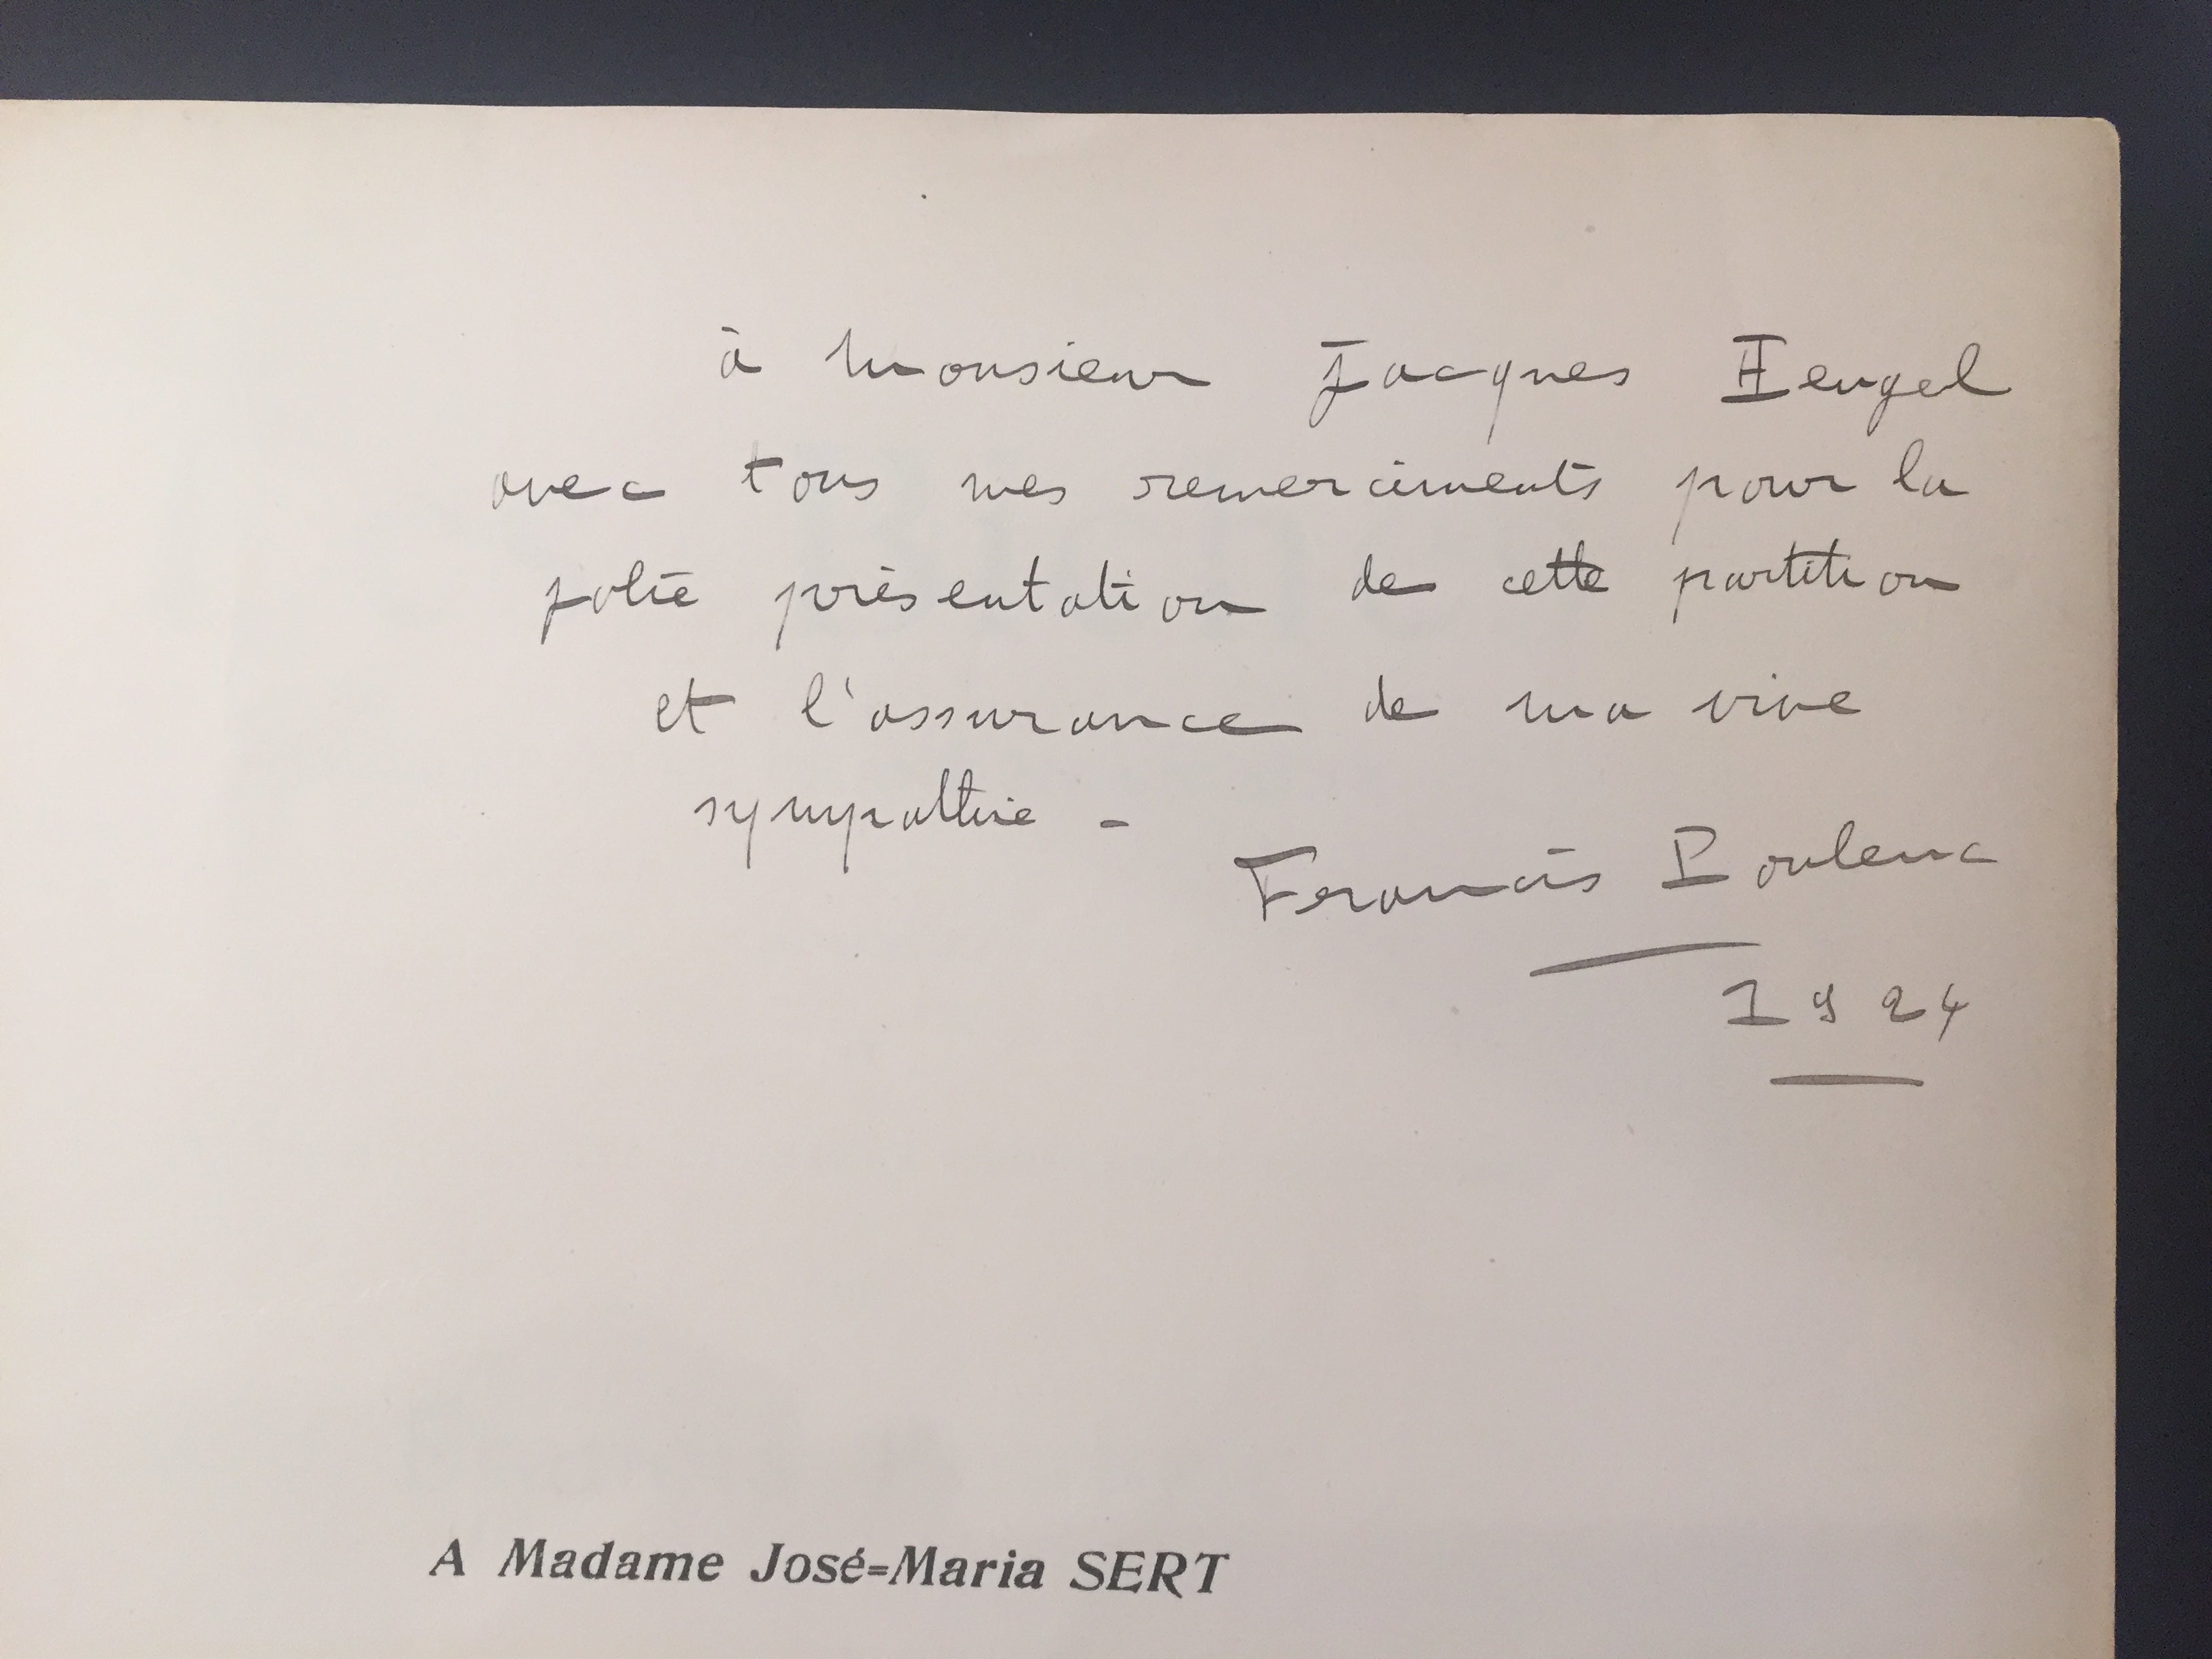 à Monsieur Jacques Heugel
avec tous mes remerciments pour la
jolie présentation de cette partition
et l'assurance de ma vive
sympathie -
Francis Poulenc
1924
A Madame José=Maria SERT